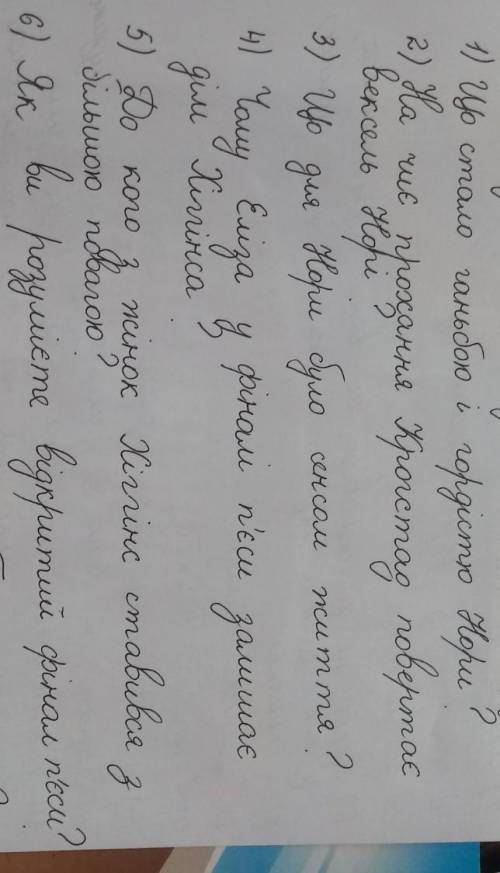 1) Що стало ганьбою і гордістю Нори?
2) На чиє прохання Крогстад повертає
вексель Норі?
3) Що для Нори було сенсом життя?
4) Чому Еліза у фіналі п'єси залишає
дім Хіггінса?
5) До кого з жінок Хіггінс ставився з
більшою повагою?
6) Як ви розумієте відкритий фінал п'єси?